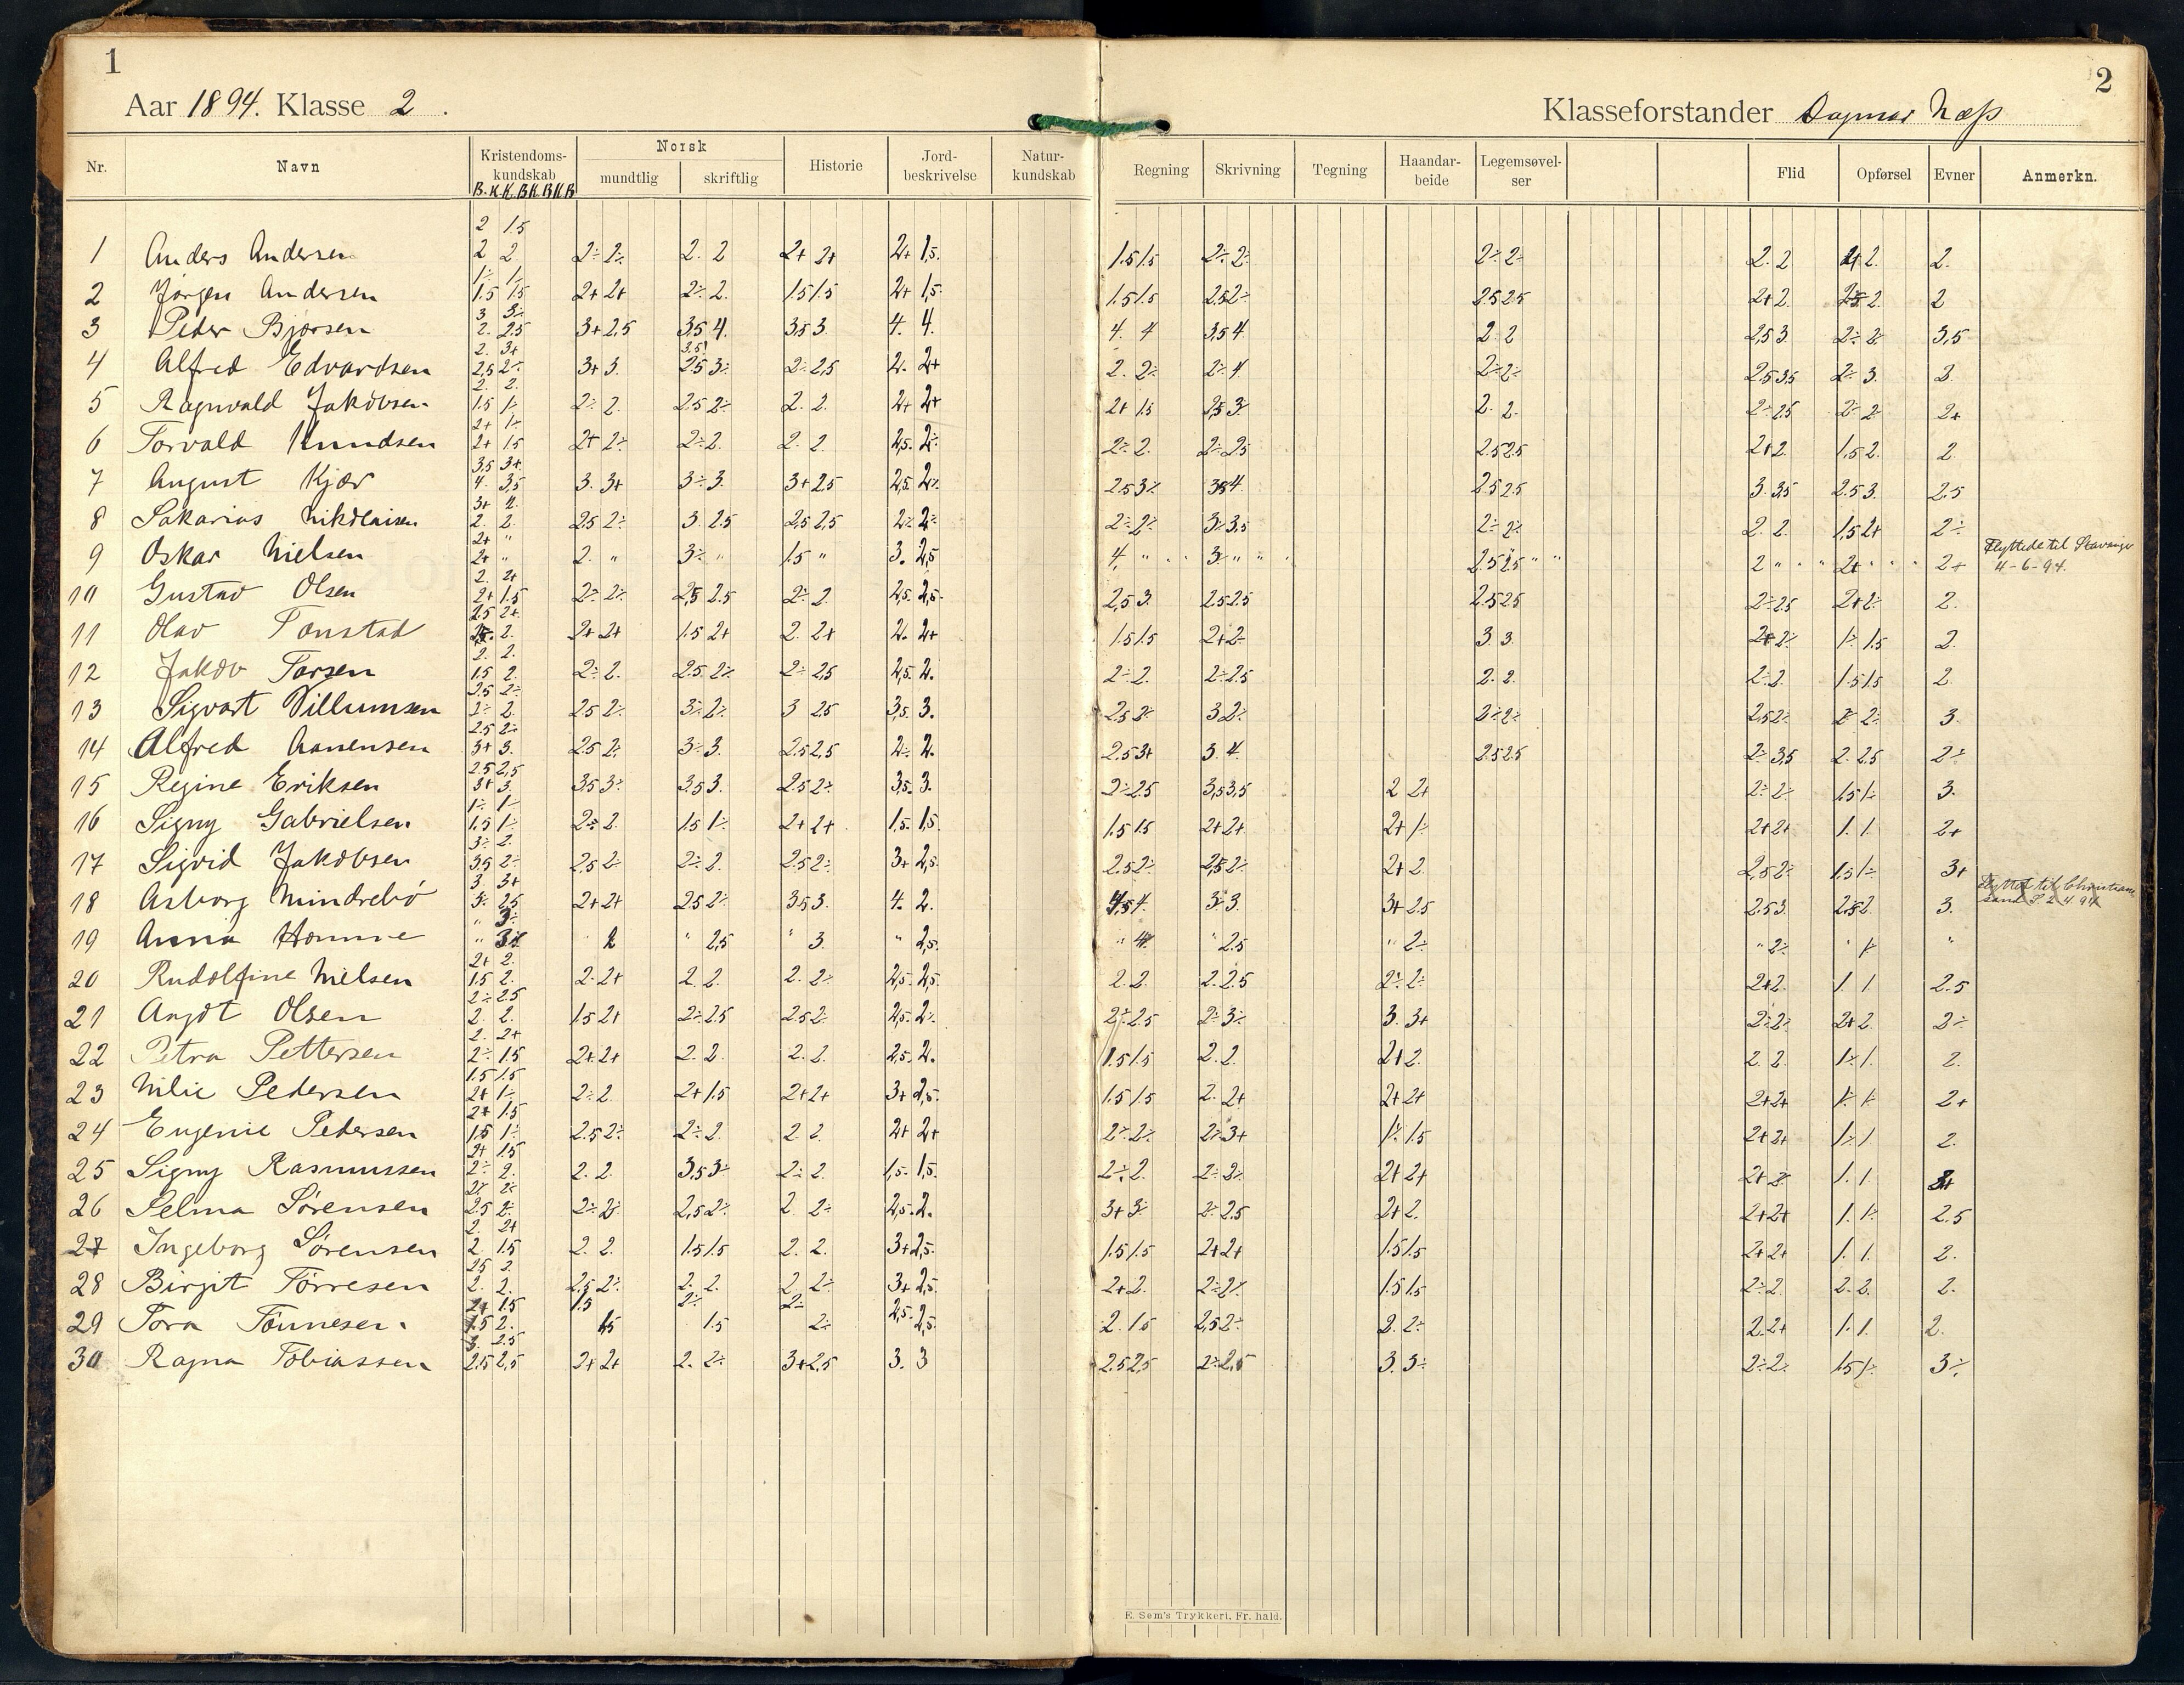 1
2
Aar 1894. Klasse 2.
Klasseforstander Dagmar Næss
Nr. Navn Kristendoms-kundskab Norsk mundtlig skriftlig Historie Jord-beskrivelse Natur-kundskab Regning Skrivning Tegning Haandar-beide Legemsøvel-ser Flid Opførsel Evner Anmerkn.
B.K.K.B.K.B.K.B
2 1.5
1 Anders Andersen 2 2. 2÷ 2÷ 2. 2 2+ 2+ 2+ 1,5. 1.5 1.5 2÷ 2÷ 2÷ 2÷ 2. 2 2. 2.
1÷ 1÷
2 Jørgen Andersen 1.5 1.5 2+ 2+ 2÷ 2. 1.5 1.5 2+ 1,5. 1.5 1.5 2.5 2÷ 2.5 2.5 2+ 2. 2. 2
3 3÷
3 Peder Bjorsen 2. 2.5 3+ 2,5 3.5 4. 3.5 3. 4. 4. 4. 4 3,5 4 2. 2 2,5 3. 2÷ 2÷ 3,5
2. 3+ 3.5
4 Alfred Edvardsen 2,5 2÷ 3+ 3. 2.5 3÷ 2÷ 2,5 2. 2+ 2. 2÷ 2÷ 4 2÷ 2÷ 2.5 3.5 2÷ 3. 3.
2. 2.
5 Ragnvald Jakobsen 1.5 1÷ 2÷ 2. 2.5 2÷ 2. 2. 2+ 2+ 2+ 1.5 2,5 3÷ 2. 2. 2÷ 2.5 2÷ 2 2+
2+ 1÷
6 Torvald Knudsen 2+ 1.5 2+ 2÷ 2÷ 2. 2. 2. 2,5. 2÷ 2÷ 2. 2÷ 2.5 2.5 2.5 2+ 2. 1.5 2. 2.
3.5 3+
7 August Kjær 4. 3.5 3. 3+ 3÷ 3. 3+ 2.5 2,5. 2÷ 2.5 3÷ 4. 2.5 2.5 3. 3.5 2.5 3. 2.5
3+ 2.
8 Sakarias Nikolaisen 2. 2. 2.5 2÷ 3. 2.5 2,5 2,5 2÷ 2÷ 2÷ 2÷ 3÷ 3,5 2÷ 2÷ 2. 2. 1,5 2+ 2÷
2+ "
9 Oskar Nielsen 2+ " 2. " 3÷ " 1.5 " 3. 2,5 4. " 3. " " " 2.5 2.5 " " 2 " " " 2+ " " " 2+ Flyttede til Stavanger
4-6-94.
2. 2+
10 Gustav Olsen 2+ 1.5 2÷ 2÷ 2,5 2.5 2÷ 2. 2,5. 2,5. 2,5 3. 2.5 2.5 2.5 2.5 2÷ 2.5 2+ 2÷ 2.
2.5 2+
11 Olav Tonstad 2. 2+ 2+ 1.5 2+ 2. 2+ 2. 2+ 1.5 1.5 2+ 2÷ 3. 3. 2+ 2÷ 1÷ 1.5 2.
2. 2.
12 Jakob Torsen 1.5 2. 2÷ 2. 2.5 2÷ 2÷ 2,5 2,5. 2. 2÷ 2. 2÷ 2.5 2. 2. 2÷ 2. 1.5 1.5 2.
2.5 2÷
13 Sigvart Villumsen 2÷ 2. 2.5 2÷ 3÷ 2÷ 3 2.5 3,5. 3. 2.5 2÷ 3 2÷ 2÷ 2÷ 2,5 2÷ 2÷ 2÷ 3.
2.5 2÷
14 Alfred Aanensen 3+ 3. 2.5 2÷ 3÷ 3. 2.5 2,5 2÷ 2. 2.5 3+ 3. 4. 2.5 2.5 2÷ 3,5 2. 2.5 2÷
2.5 2,5
15 Regine Eriksen 3+ 3. 3.5 3÷ 3.5 3. 2.5 2÷ 3,5. 3. 2÷ 2.5 3,5 3,5 2 2+ 2÷ 2÷ 1.5 1÷ 3.
1÷ 1÷
16 Signy Gabrielsen 1.5 1÷ 2÷ 2. 1.5 1÷ 2+ 2+ 1,5. 1,5. 1.5 1.5 2+ 2+ 2+ 1÷ 2+ 2+ 1. 1. 2+
3÷ 2.
17 Sigrid Jakobsen 3.5 2÷ 2.5 2÷ 2÷ 2. 2.5 2÷ 3+ 2,5. 2.5 2÷ 2,5 2÷ 2+ 2. 2,5 2÷ 1.5 1÷ 3+
3. 3+
18 Asborg Mindrebö 3÷ 2.5 2+ 2+ 2.5 2÷ 3.5 3. 4. 2. 4. 3÷ 3. 3+ 2.5 2.5 3. 2. 3. Flyttet til Christian
sand S 2 4 94
" 3÷
19 Anna Homme " " 2 " 2,5 " 3. " 2,5. " 4. " 2.5 " 2÷ " 2÷ " 1÷ "
2+ 2.
20 Rudolfine Nielsen 1.5 2. 2. 2+ 2. 2. 2. 2÷ 2,5. 2,5. 2. 2. 2. 2.5 2÷ 2÷ 2+ 2. 1. 1 2.5
2÷ 2.5
21 Angot Olsen 2. 2. 1.5 2+ 2÷ 2.5 2.5 2÷ 2,5. 2÷ 2÷ 2.5 2÷ 3÷ 3. 3+ 2÷ 2÷ 2+ 2. 2÷
2. 2+
22 Petra Pettersen 2÷ 1.5 2+ 2+ 2. 2. 2. 2. 2,5. 2. 1.5 1.5 2. 2. 2+ 2. 2. 2. 1÷ 1. 2.
1.5 1.5
23 Milie Pedersen 2+ 1÷ 2÷ 2. 2+ 1.5 2+ 2+ 3+ 2,5. 1.5 1.5 2. 2+ 2+ 2+ 2+ 2+ 1÷ 1÷ 2+
2+ 1.5
24 Eugenie Pedersen 1,5 1÷ 2.5 2÷ 2÷ 2 2. 2. 2+ 2+ 2÷ 2÷ 2÷ 3+ 1÷ 1.5 2+ 2+ 1÷ 1 2.
2+ 1.5
25 Signy Rasmussen 2÷ 2. 2. 2. 3.5 3÷ 2÷ 2 1,5. 1,5. 2÷ 2. 2÷ 2÷ 2+ 2+ 2+ 2 1. 1.
2÷ 2÷
26 Selma Sørensen 2.5 2÷ 2÷ 2÷ 2,5 2÷ 2. 2÷ 2,5. 2. 3+ 3÷ 2÷ 2.5 2+ 2. 2+ 2+ 1. 1÷ 2.5
2. 2+
27 Ingeborg Sørensen 2. 1.5 2. 2. 1.5 1.5 2. 2. 3+ 2,5. 1.5 1.5 2+ 2+ 1.5 1.5 2+ 2+ 1. 1. 2.
2.5 2.
28 Birgit Tørresen 2. 2. 2,5 2÷ 2. 2. 2. 2÷ 3+ 2,5. 2+ 2. 2÷ 2÷ 1.5 1.5 2÷ 2. 2. 2. 2.
2+ 1.5 1.5 2÷ 2÷
29 Tora Tönnesen 1.5 2. 1.5 1.5 2÷ 2,5. 2,5. 2. 1.5 2,5 2÷ 2. 2÷ 2. 2+ 1. 1. 2.
3. 2.5
30 Ragna Tobiassen 2,5 2,5 2+ 2+ 2. 2÷ 3+ 2.5 3. 3 2.5 2,5 2÷ 2,5 3. 3÷ 2÷ 2÷ 1.5 1÷ 3÷
E. Sem's Trykkeri, Fr. hald.